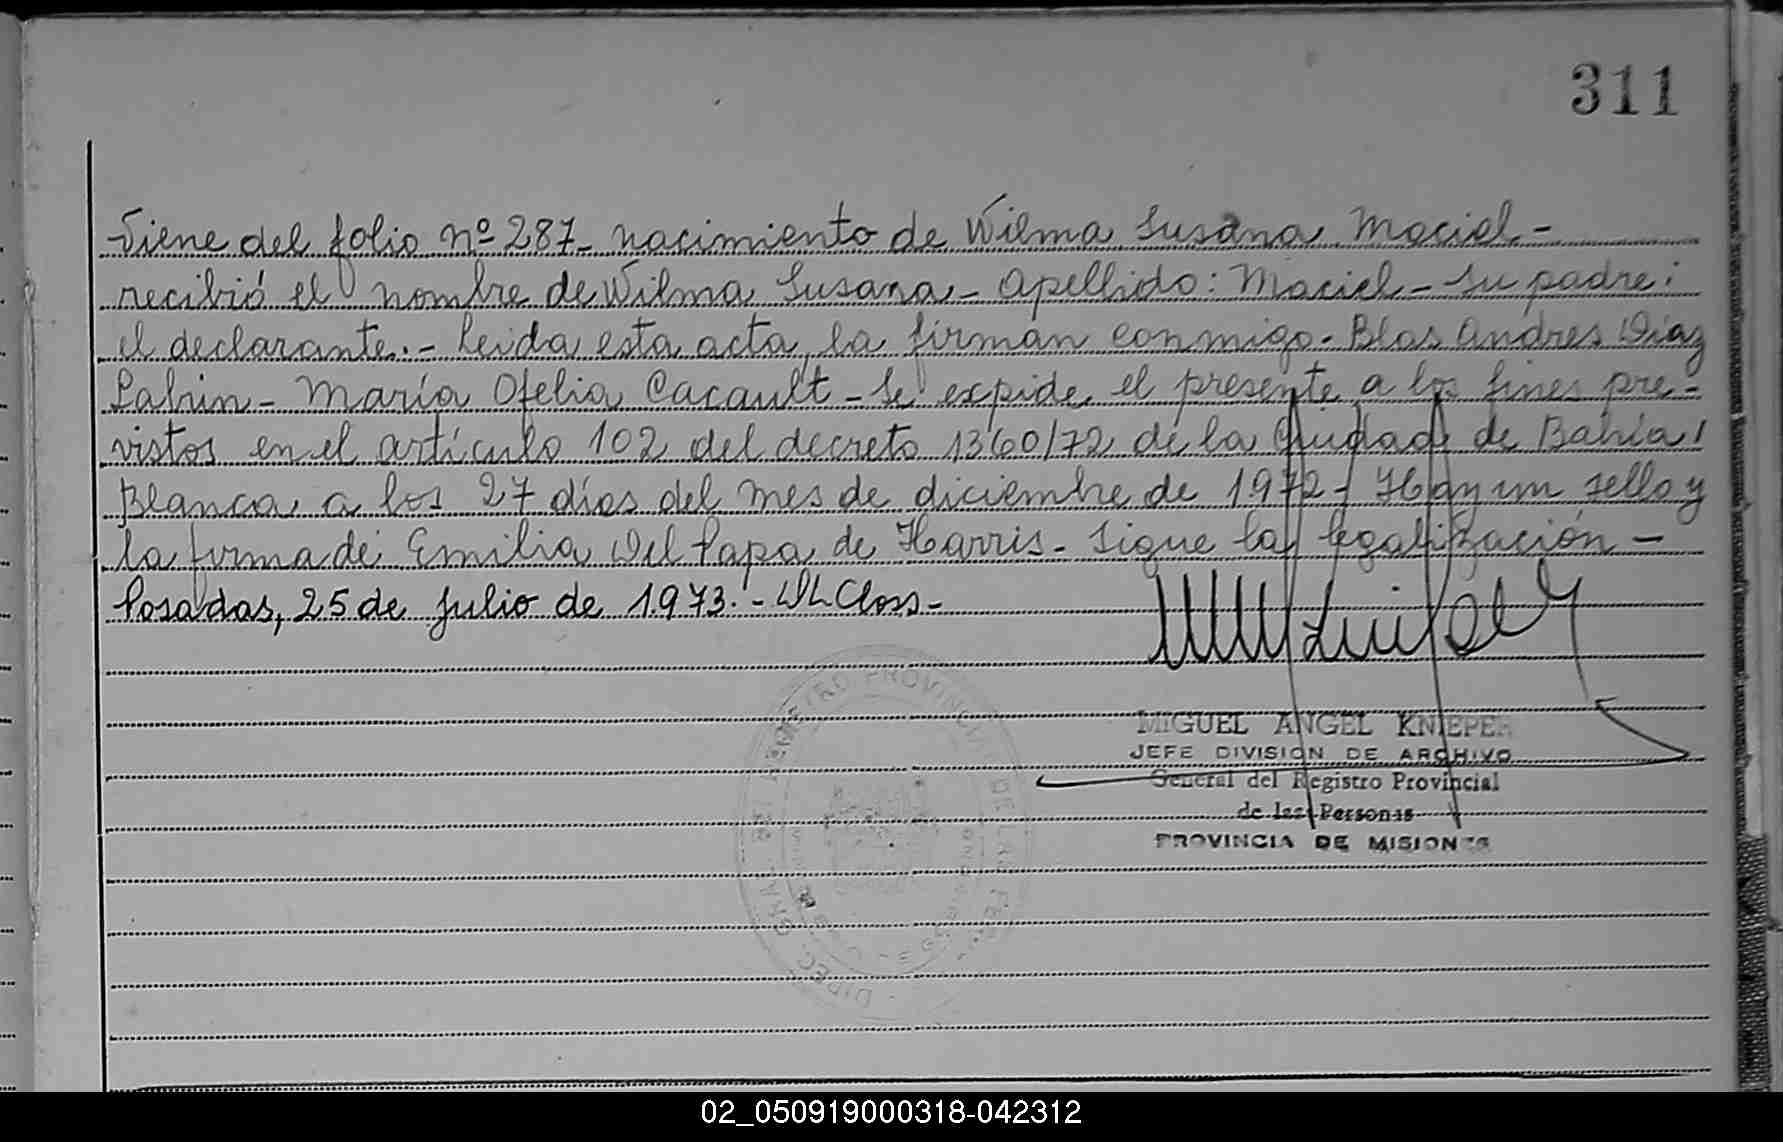 311
Viene del folio nº 287- nacimiento de Wilma Susana Maciel-
recibió el nombre de Wilma Susana- Apellido: Maciel- Su padre:
el declarante.- Leida esta acta, la firman conmigo- Blas Andres Diaz
- María Ofelia Cacault- Se expide el presente a los fines pre-
vistos en el artículo 102 del decreto 1360/72 de la Ciudad de Bahía
Blanca a los 27 días del mes de diciembre de 1972- Hay un sello y
la firma de Emilia Del Papa de Harris- Sigue la legalización-
Posadas, 25 de Julio de 1973.-
MIGUEL ANGEL KNIEPER
JEFE DIVISION DE ARCHIVO
General del Registro Provincial
de las Personas
PROVINCIA DE MISIONES
02_050919000318-042312